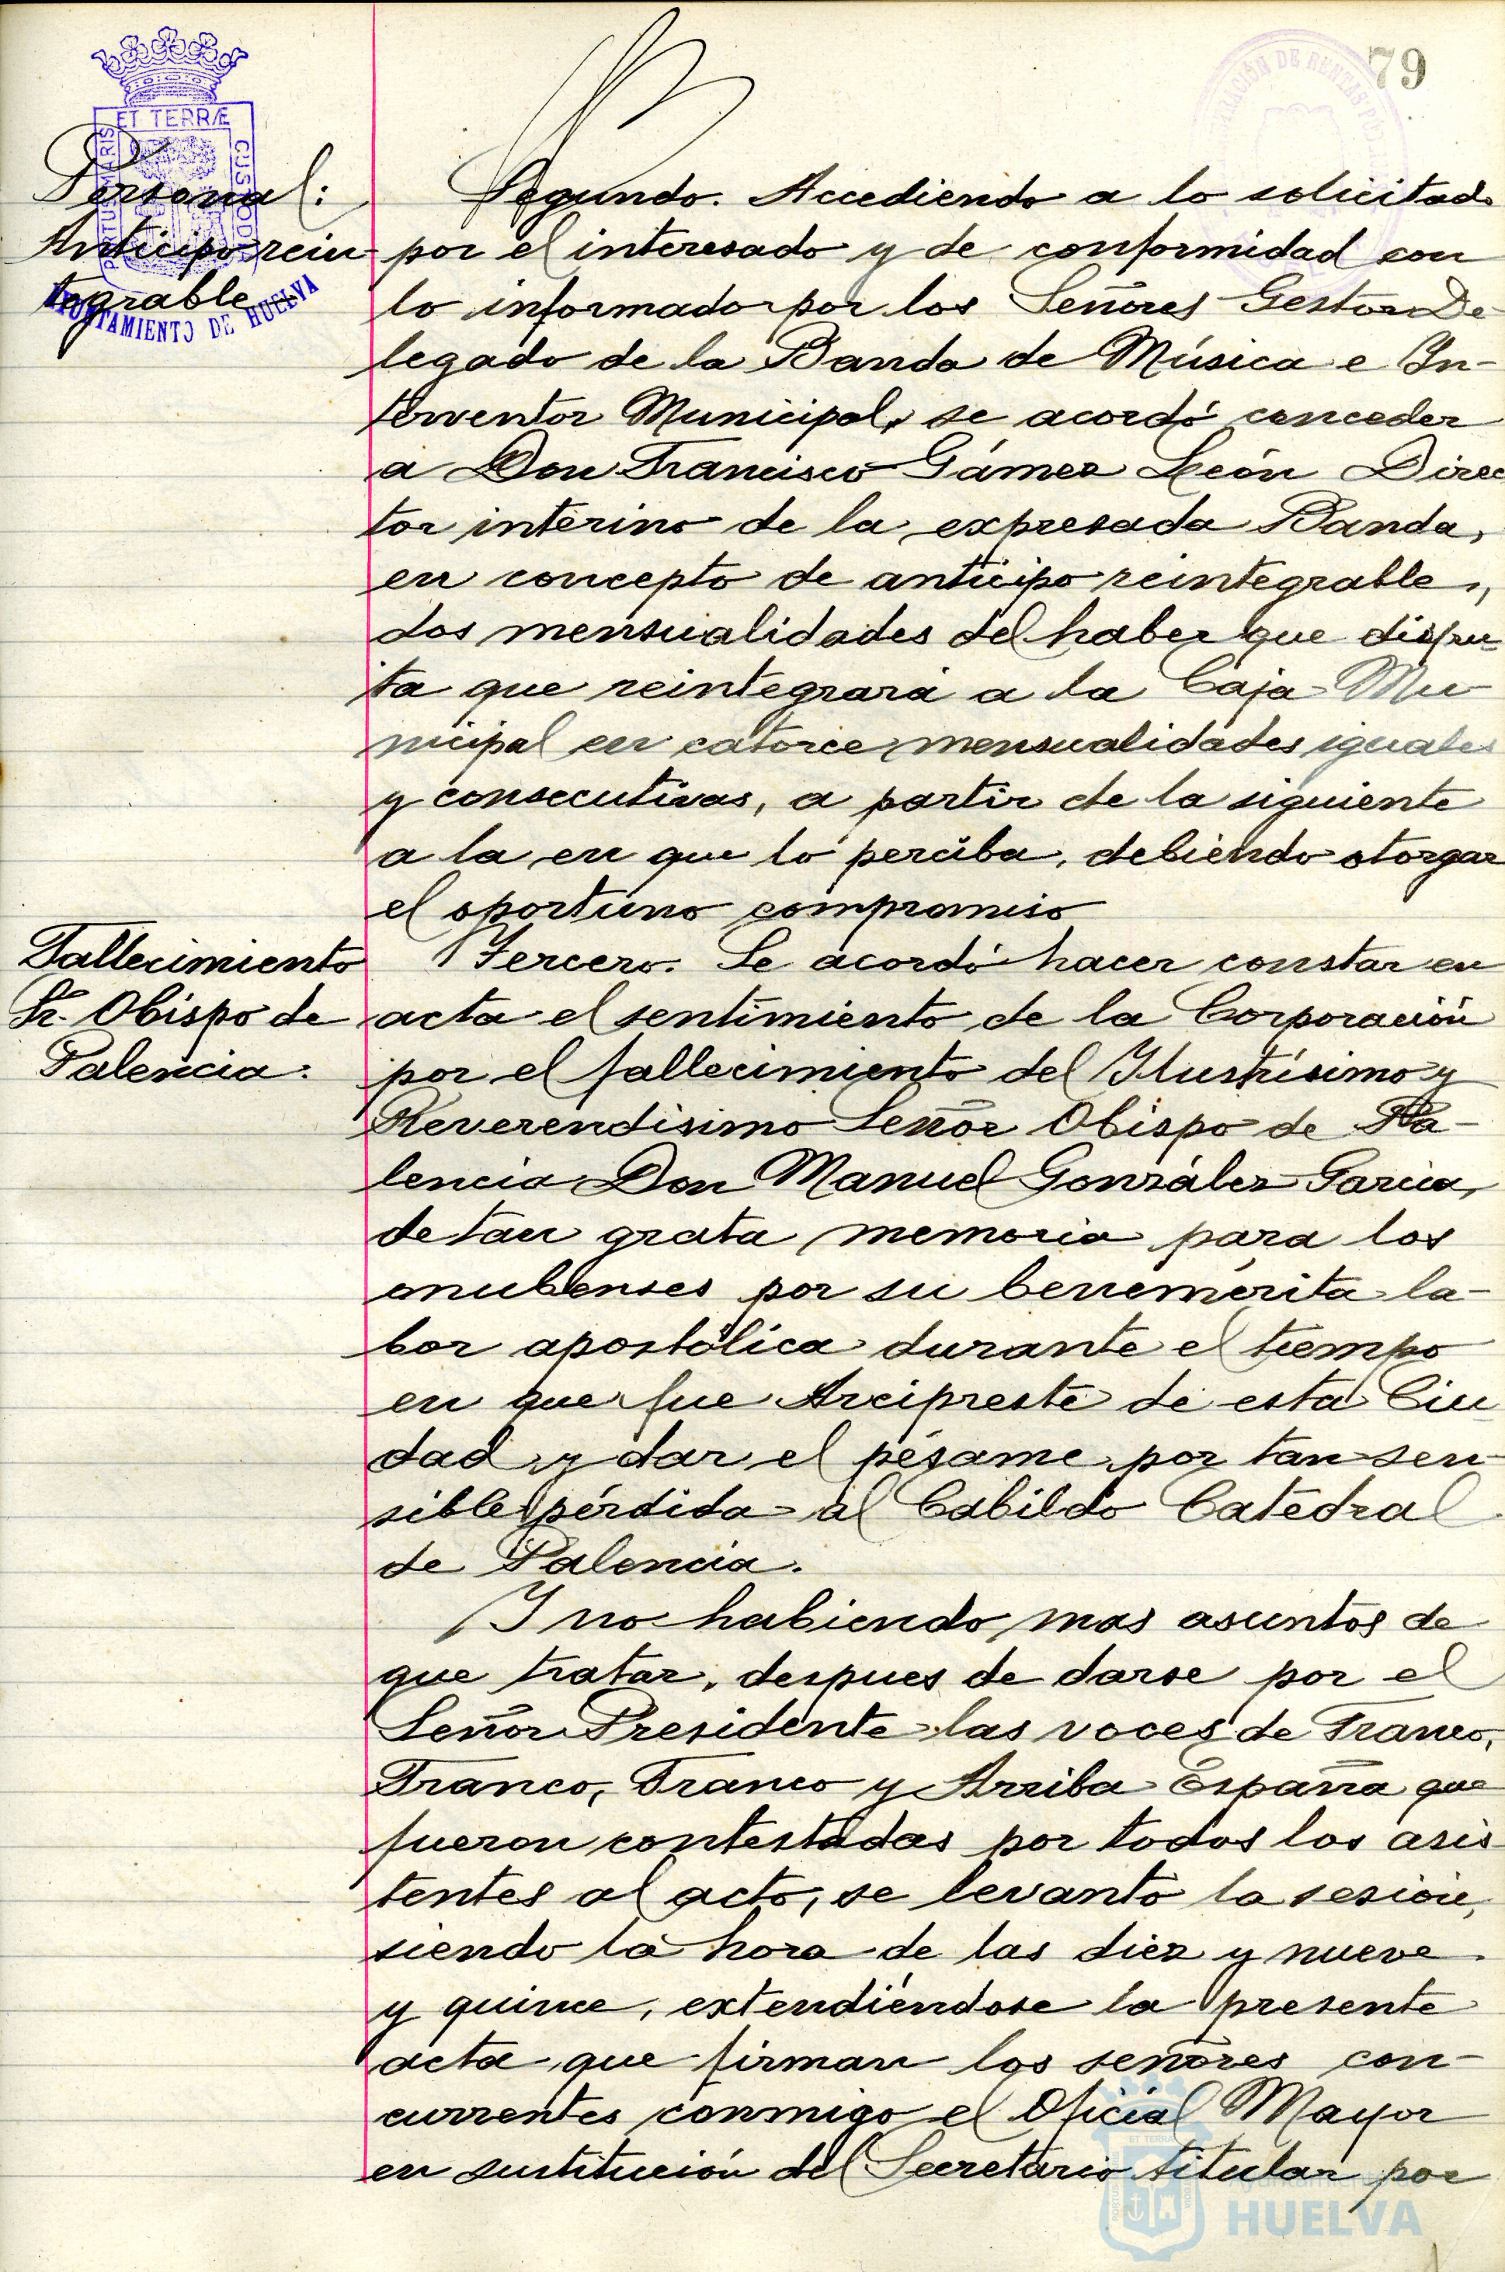 79
ET TERRÆ
PORTUS MARIS
CUSTODIA
AYUNTAMIENTO DE HUELVA
Personal:
Anticipo rein
tegrable.
Segundo. Accediendo a lo solicitado
por el interesado y de conformidad con
lo informado por los Señores Gestor De-
legado de la Banda de Música e In-
terventor Municipal, se acordó conceder
a Don Francisco Gámez León Direc
tor interino de la expresada Banda,
en concepto de anticipo reintegrable,
dos mensualidades del haber que disfru-
ta que reintegrará a la Caja Mu-
nicipal en catorce mensualidades iguales
y consecutivas, a partir de la siguiente
a la en que lo perciba, debiendo otorgar
el oportuno compromiso
Fallecimiento
Sr. Obispo de
Palencia.
Tercero. Se acordó hacer constar en
acta el sentimiento de la Corporación
por el fallecimiento del Ilustrísimo y
Reverendisimo Señor Obispo de Pa-
lencia Don Manuel González Garcia,
de tan grata memoria para los
onubenses por su benemérita la-
bor apostólica durante el tiempo
en que fue Arcipreste de esta Ciu
dad y dar el pésame por tan sen-
sible pérdida al Cabildo Catedral
de Palencia.
Y no habiendo mas asuntos de
que tratar, despues de darse por el
Señor Presidente las voces de Franco,
Franco, Franco y Arriba España que
fueron contestadas por todos los asis
tentes al acto, se levantó la sesión,
siendo la hora de las diez y nueve
y quince, extendiéndose la presente
acta que firman los señores con-
currentes conmigo el Oficial Mayor
en sustitución del Secretario titular por
Ayuntamiento de
HUELVA